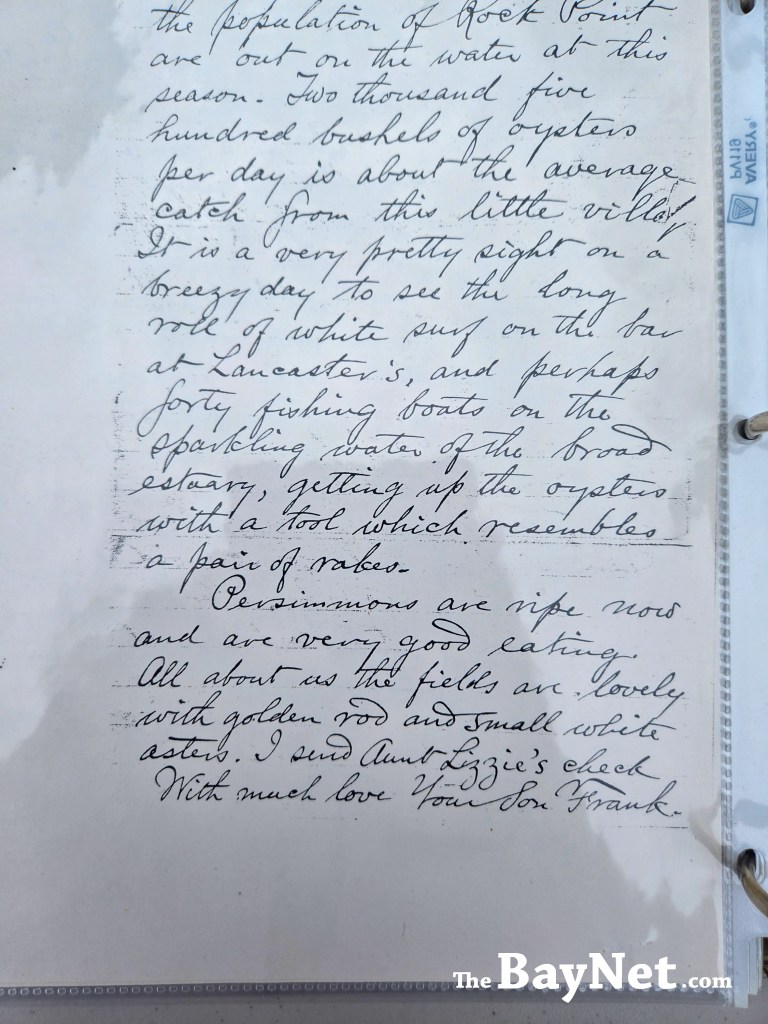 the population of Rock Point
are out on the water at this
season. Two thousand five
hundred bushels of oysters
per day is about the average
catch from this little villa
It is a very pretty sight on a
breezy day to see the long
roll of white surf on the bar
at Lancaster's, and perhaps
forty fishing boats on the
sparkling water of the broad
estuary, getting up the oysters
with a tool which resembles
a pair of rakes.
Persimmons are ripe now
and are very good eating.
All about us the fields are lovely
with golden rod and small white
asters. I send Aunt Lizzie's check
With much love Your Son Frank.
AVERY
PA119
The BayNet.com